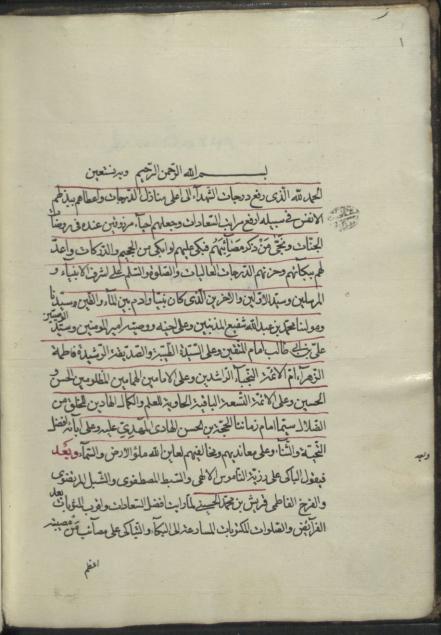 بسم الله الرّحمن الرّحيم وبه نستعين
الحمد لله الّذي رفع درجات الشّهدآء الى اعلى منازل الدّرجات واعطاهم ببذلهم
الانفس في سبيله ارفع مراتب السّعادات وجعلهم احيآء مرزوقين عنده في روضات
الجنّات ونجّى مَنْ ذكر مصآئبهم فبكى عليهم او ابكى من الجحيم والدّركات واعدّ
لهم ببكآئهم وحزنهم الدّرجات العاليات والصّلوة والسّلام على اشرف الانبيآء و
المرسلين وسيّد الاوّلين والاخرين الّذي كان نبيّا وادم بين المآء والطّين وسيّدنا
ومولينا محمّد بن عبد الله شفيع المذنبين وعلى اخيه ووصيّه امير المومنين وسيّد الوصيّين
علىّ بن ابى طالب امام المتّقين وعلى السّيّدة الطّيّبة والصّديقة الرّشيدة فاطمة
الزّهرآء امّ الائمّة النّجبآء الرّاشدين وعلى الامامين الهمامين المظلومين الحسن و
الحسين وعلى الائمّة التّسعة الباقية الحاوية للعلم والكمال الهادين للخلق من
الضّلال سيّما امام زماننا الحجّة بن الحسن الهادى المهدىّ عليه وعلى آبائه افضل
التّحيّة والثّنآء وعلى معانديهم ومخالفيهم لعاين الله ملؤ الارض والسّمآء وبَعْد
فيقول الباكى على رزيّة النّاموس الالهى والسّبط المصطفوى والشّبل المرتضوى
والفرخ الفاطمى قريش بن محمّد الحسينى لمّا رايت افضل السّعادات واقرب القربات بعد
الفرآئض والصّلوات المكتوبات المسارعة الى البكآء والتّباكى على مصآئب مَنْ مصيبته
اعظم